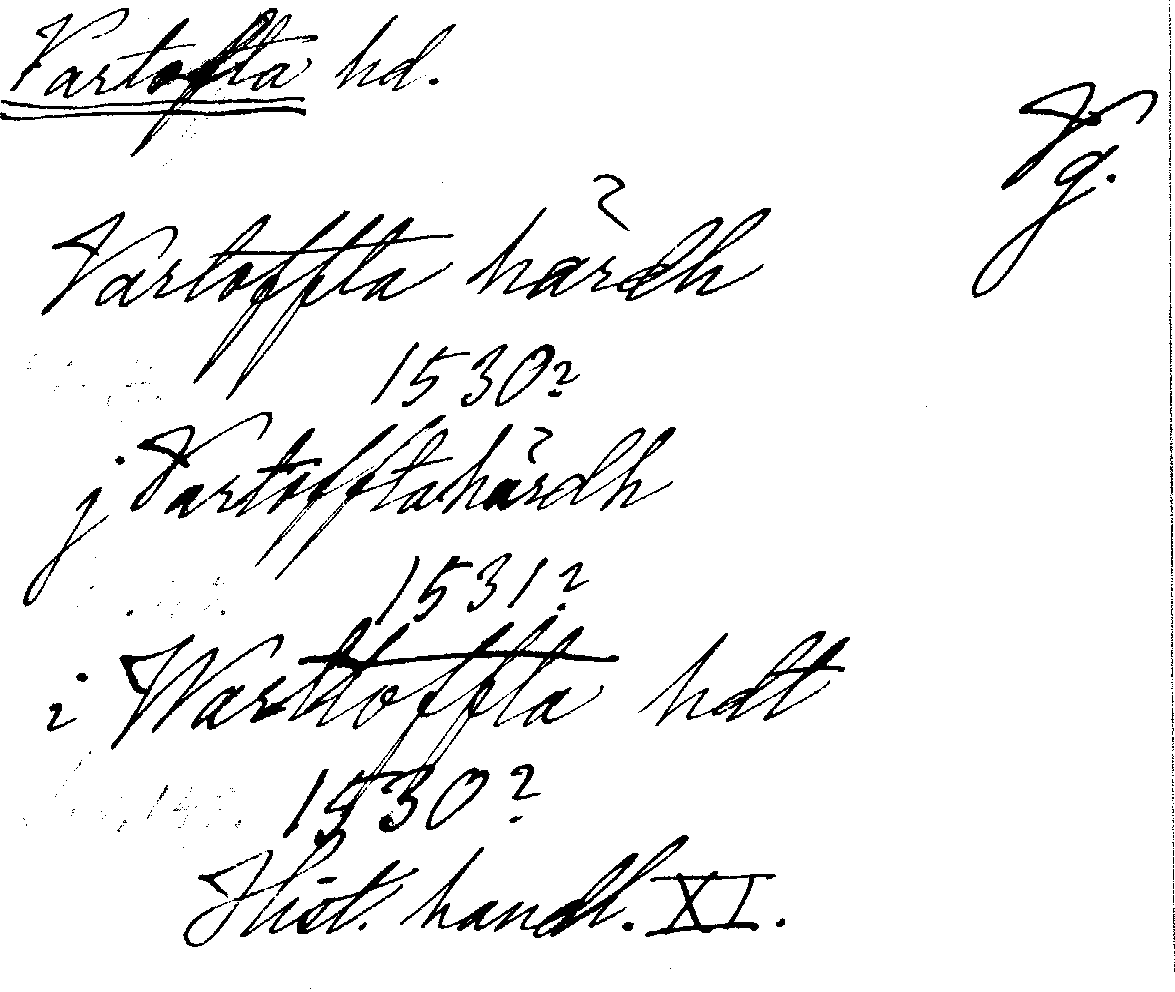 Vartofta hd.
Vg.
Vartoffta härdh
1530?
j Vartofftahärdh
1531?
i Warttoffta hdt
1530?
Hist. handl. XI.